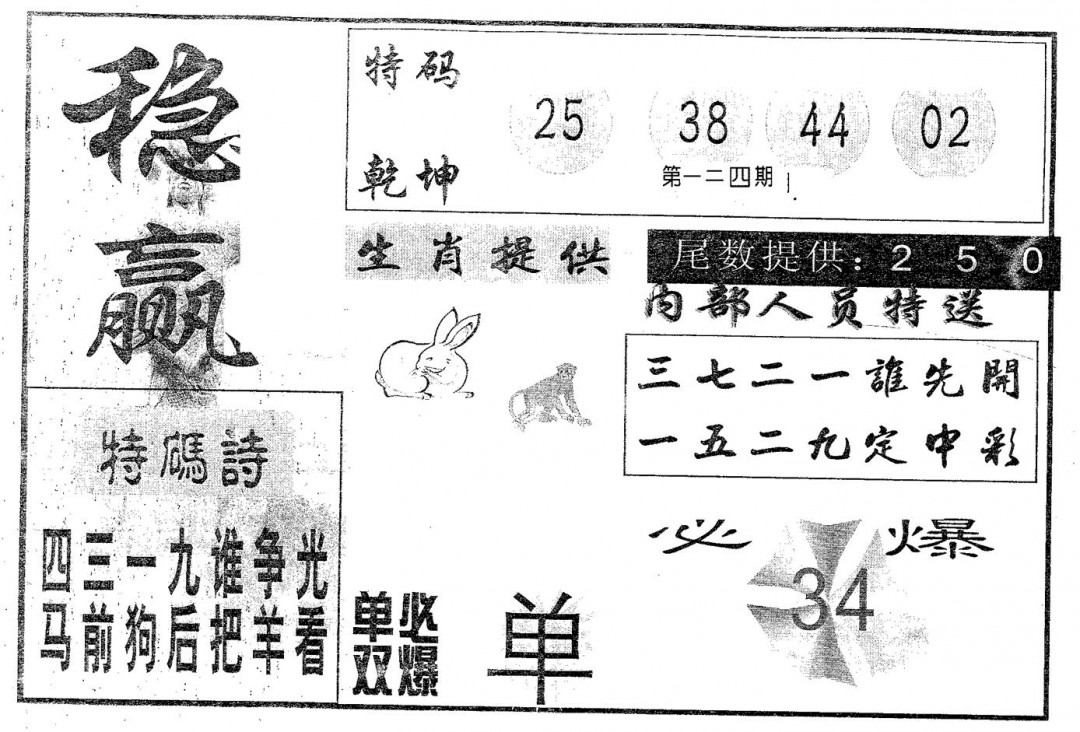 稳赢
特码
乾坤
25 38 44 02
第一二四期
生肖提供
尾数提供：2 5 0
内部人员特送
三七二一誰先開
一五二九定中彩
特碼詩
四三一九谁争光
马前狗后把羊看
单双
必爆
单
必爆
34